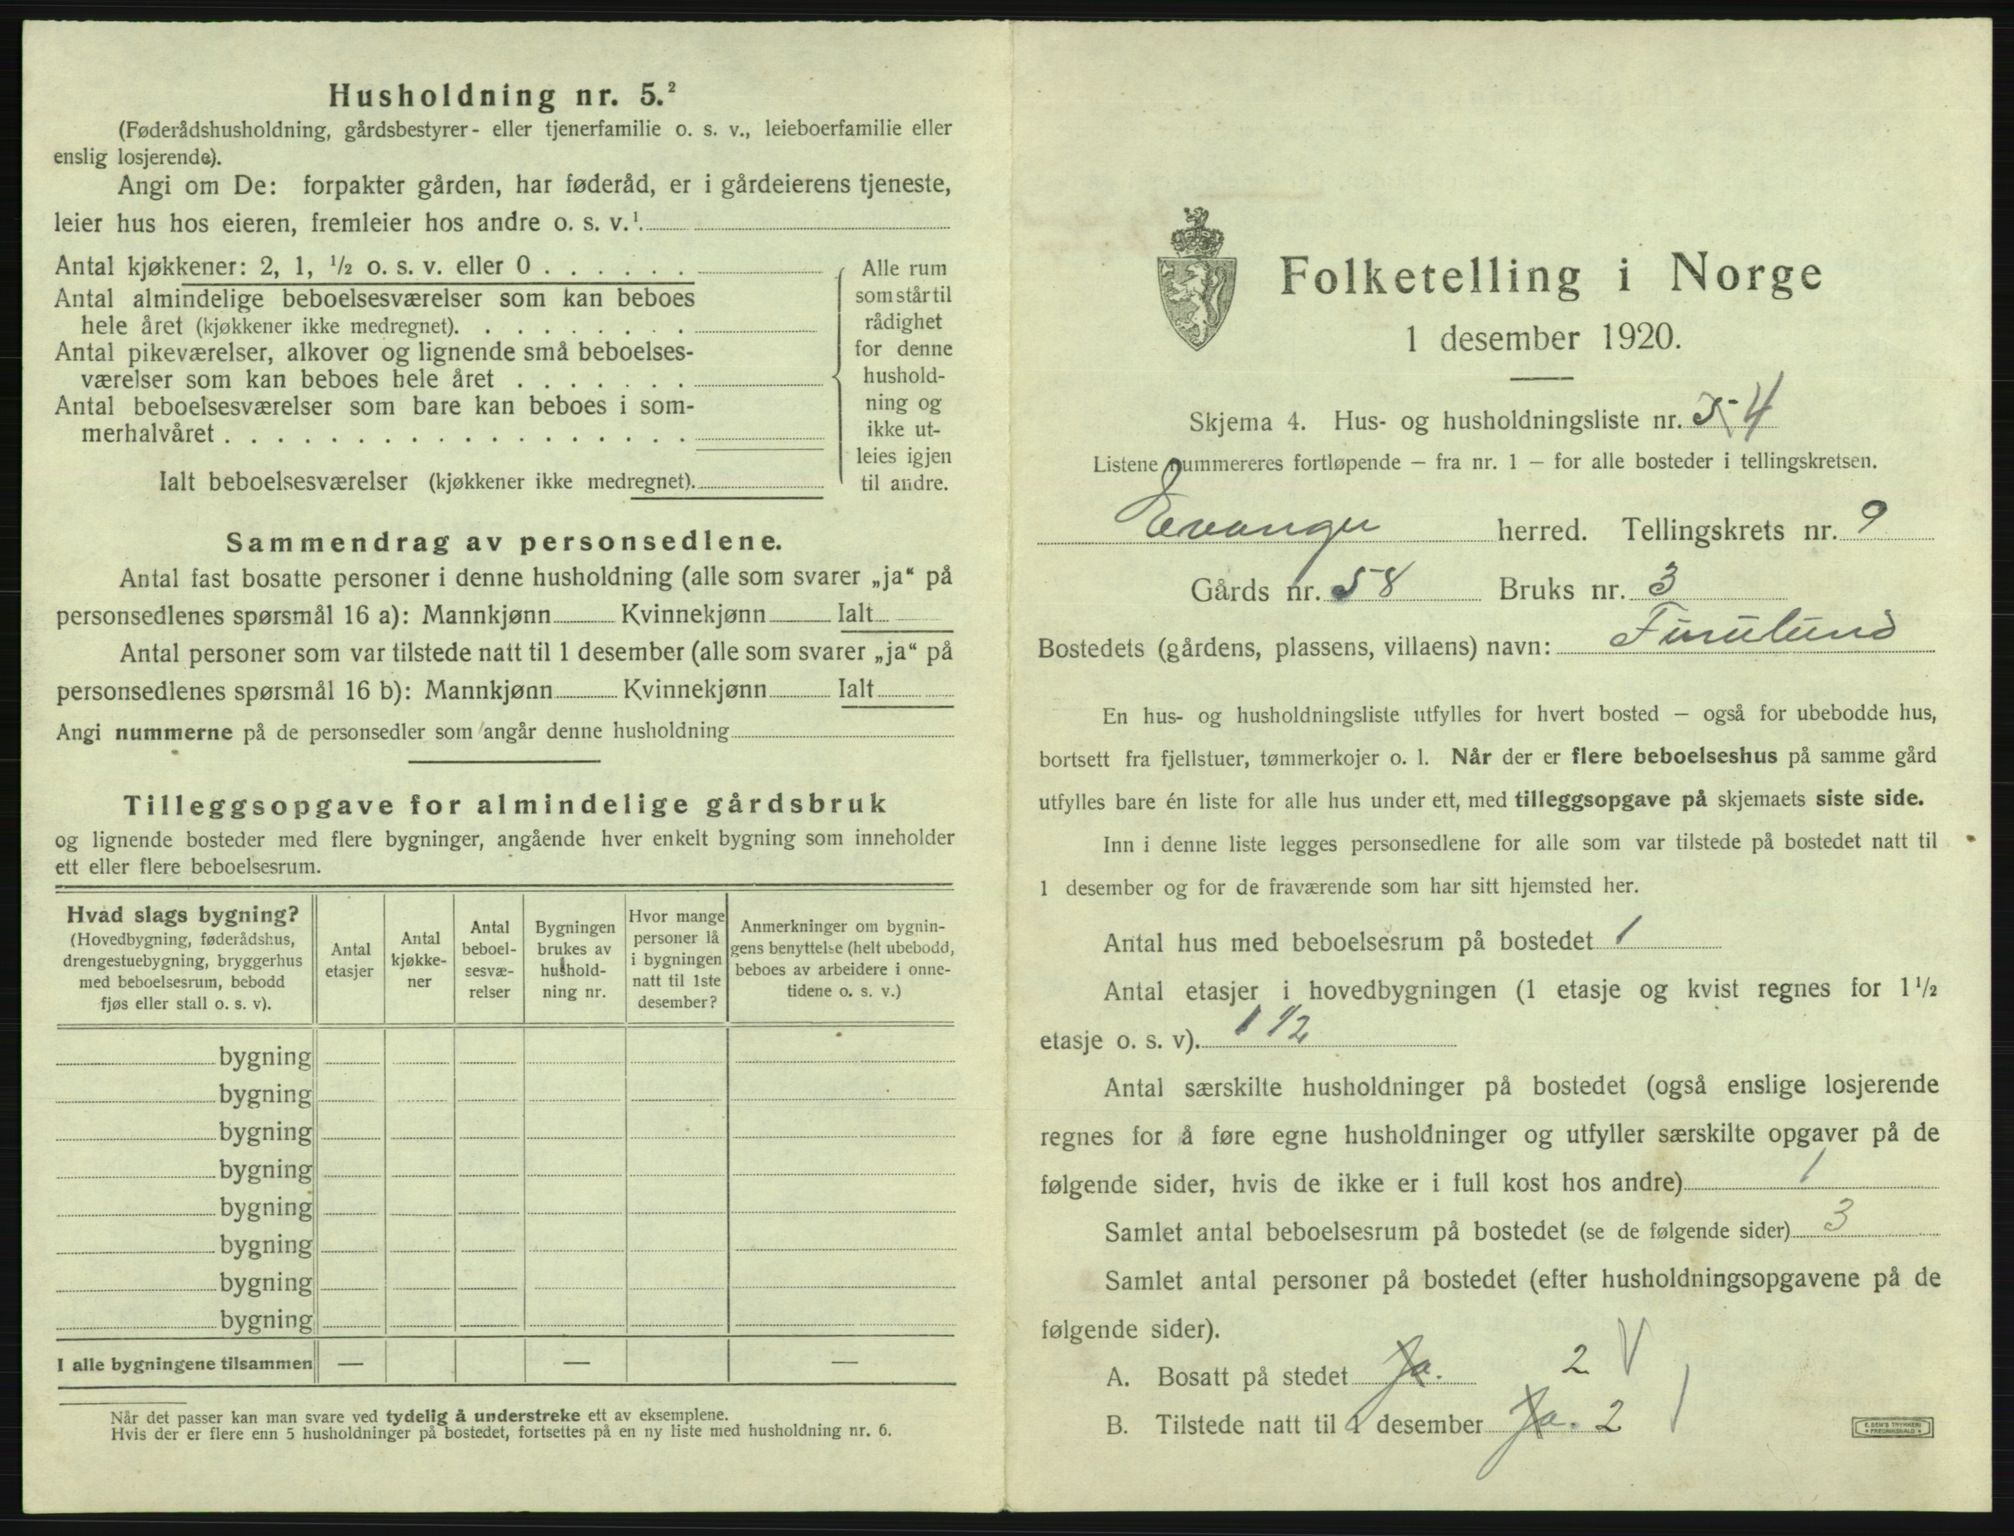 Husholdning nr. 5.²
(Føderådshusholdning, gårdsbestyrer- eller tjenerfamilie o. s. v., leieboerfamilie eller
enslig losjerende).
Angi om De: forpakter gården, har føderåd, er i gårdeierens tjeneste,
leier hus hos eieren, fremleier hos andre o. s. v.¹
Antal kjøkkener: 2, 1, ½ o. s. v. eller 0
Antal almindelige beboelsesværelser som kan beboes
hele året (kjøkkener ikke medregnet).
Antal pikeværelser, alkover og lignende små beboelses-
værelser som kan beboes hele året
Antal beboelsesværelser som bare kan beboes i som-
merhalvåret
Ialt beboelsesværelser (kjøkkener ikke medregnet).
Alle rum
som står til
rådighet
for denne
hushold-
ning og
ikke ut-
leies igjen
til andre.
Sammendrag av personsedlene.
Antal fast bosatte personer i denne husholdning (alle som svarer „ja“ på
personsedlenes spørsmål 16 a): Mannkjønn Kvinnekjønn Ialt
Antal personer som var tilstede natt til 1 desember (alle som svarer „ja“ på
personsedlenes spørsmål 16 b): Mannkjønn Kvinnekjønn Ialt
Angi nummerne på de personsedler som angår denne husholdning
Tilleggsopgave for almindelige gårdsbruk
og lignende bosteder med flere bygninger, angående hver enkelt bygning som inneholder
ett eller flere beboelsesrum.
Hvad slags bygning?
(Hovedbygning, føderådshus,
drengestuebygning, bryggerhus
med beboelsesrum, bebodd
fjøs eller stall o. s. v).
Antal
etasjer
Antal
kjøkke-
ner
Antal
beboel-
sesvæ-
relser
Bygningen
brukes av
hushold-
ning nr.
Hvor mange
personer lå
i bygningen
natt til 1ste
desember?
Anmerkninger om bygnin-
gens benyttelse (helt ubebodd,
beboes av arbeidere i onne-
tidene o. s. v.)
bygning
bygning
bygning
bygning
bygning
bygning
bygning
bygning
I alle bygningene tilsammen — — —
Når det passer kan man svare ved tydelig å understreke ett av eksemplene.
Hvis der er flere enn 5 husholdninger på bostedet, fortsettes på en ny liste med husholdning nr. 6.
Folketelling i Norge
1 desember 1920.
Skjema 4. Hus- og husholdningsliste nr. 5 4
Listene nummereres fortløpende – fra nr. 1 – for alle bosteder i tellingskretsen.
Evanger herred. Tellingskrets nr. 9
Gårds nr. 58 Bruks nr. 3
Bostedets (gårdens, plassens, villaens) navn: Furulund
En hus- og husholdningsliste utfylles for hvert bosted – også for ubebodde hus,
bortsett fra fjellstuer, tømmerkojer o. l. Når der er flere beboelseshus på samme gård
utfylles bare én liste for alle hus under ett, med tilleggsopgave på skjemaets siste side.
Inn i denne liste legges personsedlene for alle som var tilstede på bostedet natt til
1 desember og for de fraværende som har sitt hjemsted her.
Antal hus med beboelsesrum på bostedet 1
Antal etasjer i hovedbygningen (1 etasje og kvist regnes for 1 ½
etasje o. s. v). 1 1/2
Antal særskilte husholdninger på bostedet (også enslige losjerende
regnes for å føre egne husholdninger og utfyller særskilte opgaver på de
følgende sider, hvis de ikke er i full kost hos andre) 1
Samlet antal beboelsesrum på bostedet (se de følgende sider) 3
Samlet antal personer på bostedet (efter husholdningsopgavene på de
følgende sider).
A. Bosatt på stedet Ja. 2
B. Tilstede natt til 1 desember Ja. 2
E. SEM'S TRYKKERI
FREDRIKSHALD